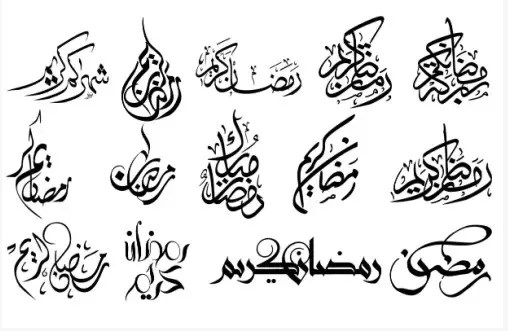 رمضان كريم رمضان كريم رمضان كريم شهركم كريم
رمضان كريم رمضان كريم رمضان مبارك رمضان رمضان كريم
رمضان رمضان كريم رمضان كريم رمضان كريم